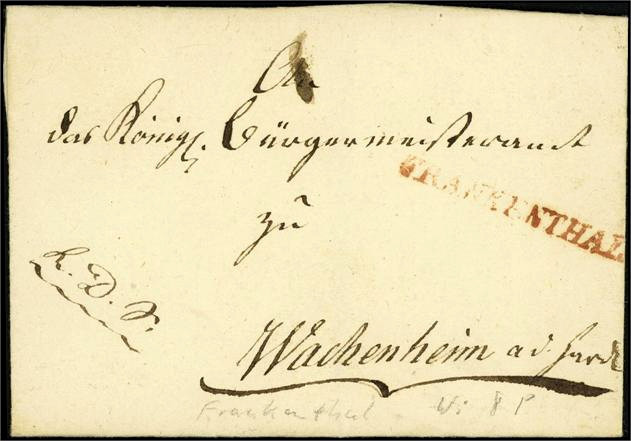 An
das Königl. Bürgermeisteramt
FRANKENTHAL
zu
K. D. S.
Wachenheim ad Hardt
Frankenthal Wi 8 P